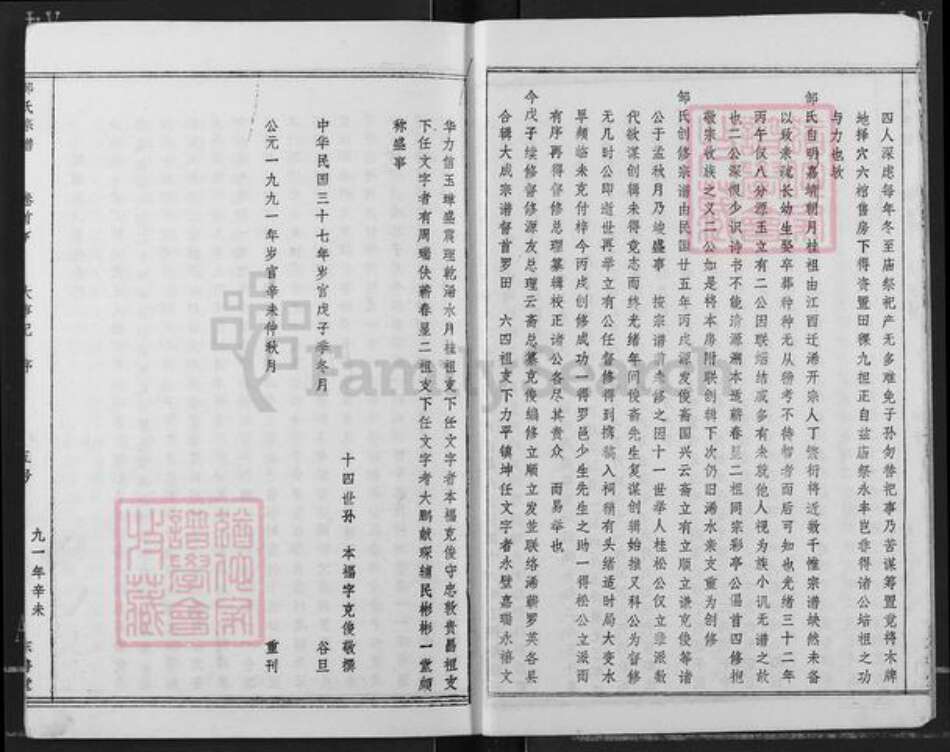 四人深虑每年冬至庙祭祀产无多难免子孙勿替祀事乃苦谋筹置竟将木牌
地择穴六棺售房下得资置田裸九担正自兹庙祭永丰岂非得诸公培祖之功
与力也欤
邹氏自明嘉靖朝月桂祖由江西迁浠开宗人丁繁衍将近数千惟宗谱缺然未备
以致亲疏长幼生娶卒葬种种无从稽考不待智者而后可知也光绪三十二年
丙午仅八分源玉立有二公因联婚结戚多有未就他人视为族小讥无谱之故
也二公深恨少识诗书不能清源溯本适蕲春显二祖同宗彩亭公渴首四修抱
敬宗收族之义二公如是将本房附联创辑下次仍旧浠水亲支重为创修
邹氏创修宗谱由民国廿五年丙戌源发俊斋国兴云斋立有立顺立谦克俊等诸
公于孟秋月乃竣盛事 按宗谱前未修之因十一世举人桂松公仅立垂派数
代欲谋创辑未得竟志而终光绪年间俊斋先生复谋创辑始推又科公为督修
无几时公即逝世再举立有公任督修得到携稿入祠稍有头绪适时局大变水
旱频临未克付梓今丙戌创修成功一得罗邑少生先生之助一得松公立派而
有序再得督修总理纂辑校正诸公各尽其责众 而易举也
今戊子续修督修源友总理云斋总纂克俊编修立顺立发并联络浠蕲罗英各县
合辑大成宗谱督首罗田 六四祖支下力平镇坤任文字者永璧嘉瑞永禧文
华力信玉琳盛震理乾浠水月桂祖支下任文字者本福克俊守忠敦贵昌祖支
下任文字者有周瑞侠蕲春显二祖支下任文字考大鹏献琛辅民彬彬一堂颇
称盛事
中华民国三十七年岁官戊子季冬月
十四世孙 本福字克俊敬撰 谷旦
公元一九九一年岁官辛未仲秋月 重刊
邹氏宗谱 卷首 大事记 序
九一年辛未
FamilySearch